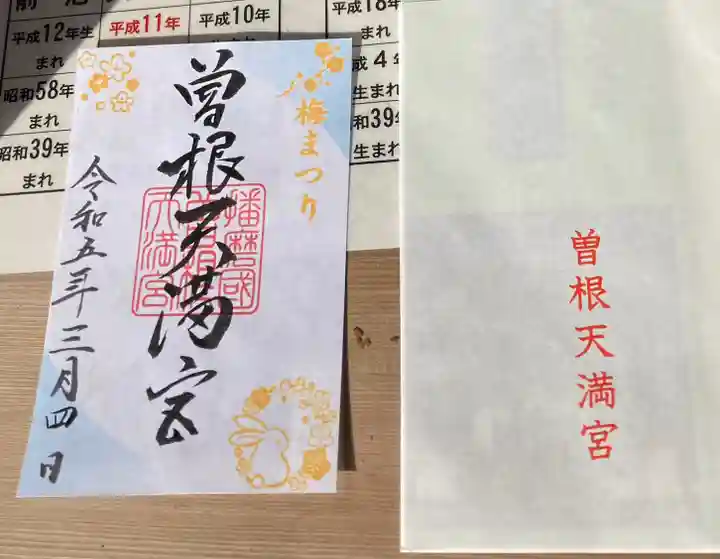 前厄
平成12年生まれ
平成11年
平成10年
昭和58年
まれ
昭和39年
まれ
平成18年
まれ
成4年
生まれ
和39年
生まれ
梅まつり
曽根天満宮
播磨國
曽根
天満宮
令和五年三月四日
曽根天満宮